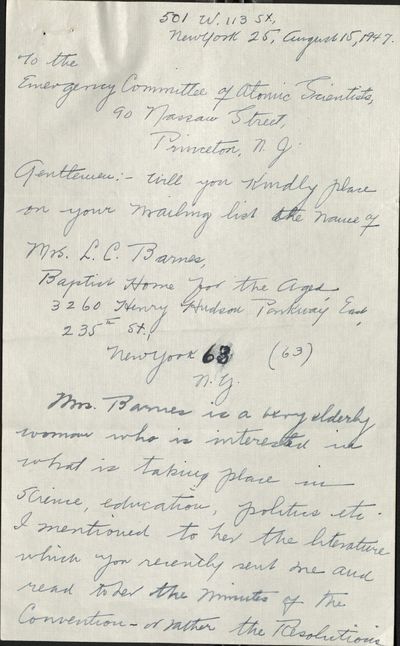 501 W. 113 St.,
New York 25, August 15, 1947.
To the
Emergency Committee of Atomic Scientists,
90 Nassau Street,
Princeton, N. J.
Gentlemen:- Will you kindly place
on your mailing list the name of
Mrs. L. C. Barnes,
Baptist Home for the Aged
3260 Henry Hudson Parkway East,
235th St.,
New York 63 (63)
N.Y.
Mrs. Barnes is a very elderly
woman who is interested in
what is taking place in
Science, education, politics etc.
I mentioned to her the literature
which you recently sent me and
read to her the minutes of the
Convention - or rather the Resolutions